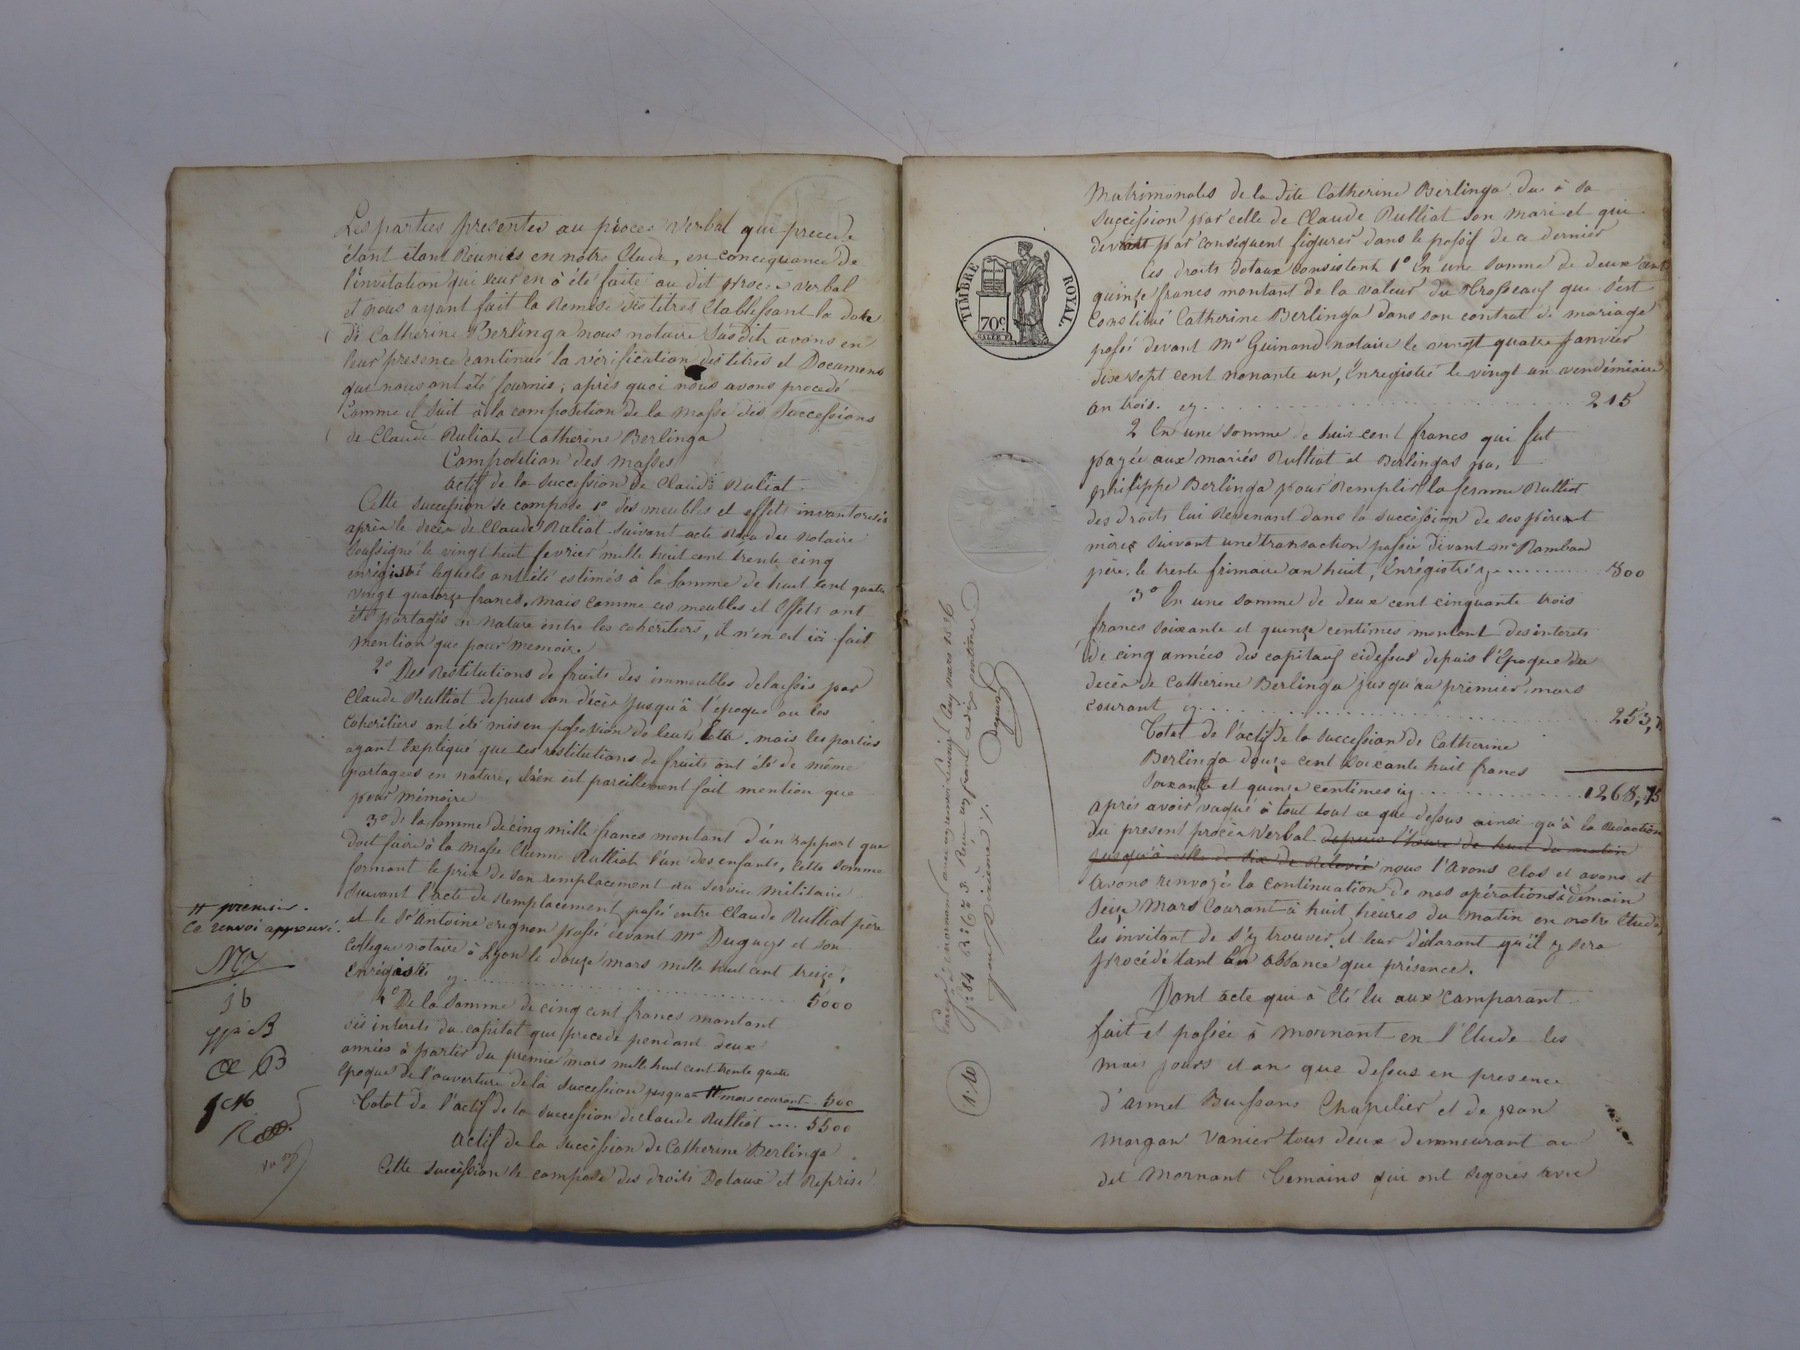 Les parties presentes au proces verbal qui precede
étant étant Réunies en notre Etude, en concequance de
l'invitation qui leur en à été faite au dit proces verbal
et nous ayant fait la Remise des titres Etablessant la dote
de Catherine Berlinga nous notaire susdit avons en
leur presence continué la vérification des titres et Documens
qui nous ont été fournis; après quoi nous avons procedé
comme il suit à la composition de la masse des successions
de Claude Ruliat et Catherine Berlinga
Composition des masses
actif de la succession de Claude Ruliat.
Cette succession se compose 1° des meubles et effets invantoriés
après le decès de Claude Ruliat suivant acte Reçu du notaire
soussigné le vingt huit fevrier mille huit cent trente cinq
enrégistré lequels ont été estimés à la somme de huit cent quatre
vingt quatorze francs. mais comme ces meubles et Effets ont
été partagés en nature entre les coheritiers, il n'en est ici fait
mention que pour memoire.
2° Des Restitutions de fruits des immeubles delaissés par
Claude Rulliat depuis son décès jusqu'à l'époque ou les
Coheritiers ont été mis en possession de leurs Lots. mais les parties
ayant Expliqué que les restitutions de fruits ont été de même
partagées en nature, il n'en est pareillement fait mention que
pour mémoire
3° de la somme de cinq mille francs montant d'un rapport que
doit faire à la masse Etienne Rulliat l'un des enfants, cette somme
formant le prix de son remplacement au service militaire
suivant l'acte de Remplacement passé entre Claude Rulliat père
et le Sr Antoine crignon passé devant Me Dugueyt et son
collegue notaire à Lyon le douze mars mille huit cent treize,
Enrégistré cy 5000
4° De la somme de cinq cent francs montant
des interets du capital qui precede pendant deux
années à partir du premier mars mille huit cent trente quatre
epoque de l'ouverture de la succession jusqu'au # mars courant 500
Total de l'actif de la succession de Claude Rulliat .... 5500
actif de la succession de Catherine Berlinga
Cette succession se compose des droits Dotaux et Reprise
# premier.
Ce renvoi approuvé.
jb
CB
Matrimonales de la dite Catherine Berlinga due à sa
succession par celle de Claude Rulliat son mari et qui
devront par conséquent figurer dans le passif de ce dernier
Ces droits dotaux consistent 1° En une somme de deux cent
quinze francs montant de la valeur du Trosseau que s'est
Constitué Catherine Berlinga dans son contrat de mariage
passé devant Me Guinand notaire le vingt quatre janvier
dix sept cent nonante un, Enregistré le vingt un vendémiaire
an trois. cy 215
2 En une somme de huit cent francs qui fut
payée aux mariés Rulliat et Berlingas par
philippe Berlinga pour Remplir la femme Rulliat
des droits lui Revenant dans la succession de ses père et
mère suivant une transaction passée devant me Rambau
père. le trente frimaire an huit, Enrégistré cy 800
3° En une somme de deux cent cinquante trois
francs soixante et quinze centimes montant des interets
de cinq années des capitaux cidessus depuis l'Epoque du
decès de Catherine Berlinga jusqu'au premier mars
courant cy 253,7
Total de l'actif de la succession de Catherine
Berlinga douze cent soixante huit francs
soixante et quinze centimes cy 1268,75
après avoir vaqué à tout tout ce que dessus ainsi qu'à la Redaction
du present procès verbal depuis l'heure de huit du matin
jusqu'à celle de dix de Relevée nous l'avons Clos et avons et
avons renvoyé la continuation de nos opérations à demain
seize Mars courant à huit heures du matin en notre Etude,
les invitant de s'y trouver et leur déclarant qu'il y sera
procédé tant en absance que présence.
Dont acte qui à été lu aux comparant
fait et passée à mornant en l'Etude les
mois jours et an que dessus en presence
d'aimé Buissons Chapelier et de jean
margan vanier tous deux demeurant au
dit Mornant Temoins qui ont signés avec
TIMBRE ROYAL
70c
1.10